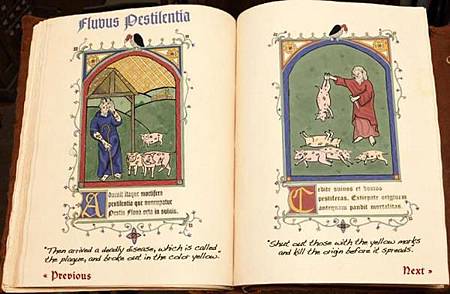 Fluvus Pestilentia
Advenit itaque mortifera
pestilentia que nuncupatur
Pestis Flava orta in suinos.
"Then arrived a deadly disease, which is called
the plague, and broke out in the color yellow.
« Previous
Cedite suinos et domos
pestiferas. Extirpate originem
antequam pandit mortalitas.
"Shut out those with the yellow marks
and kill the origin before it spreads.
Next »